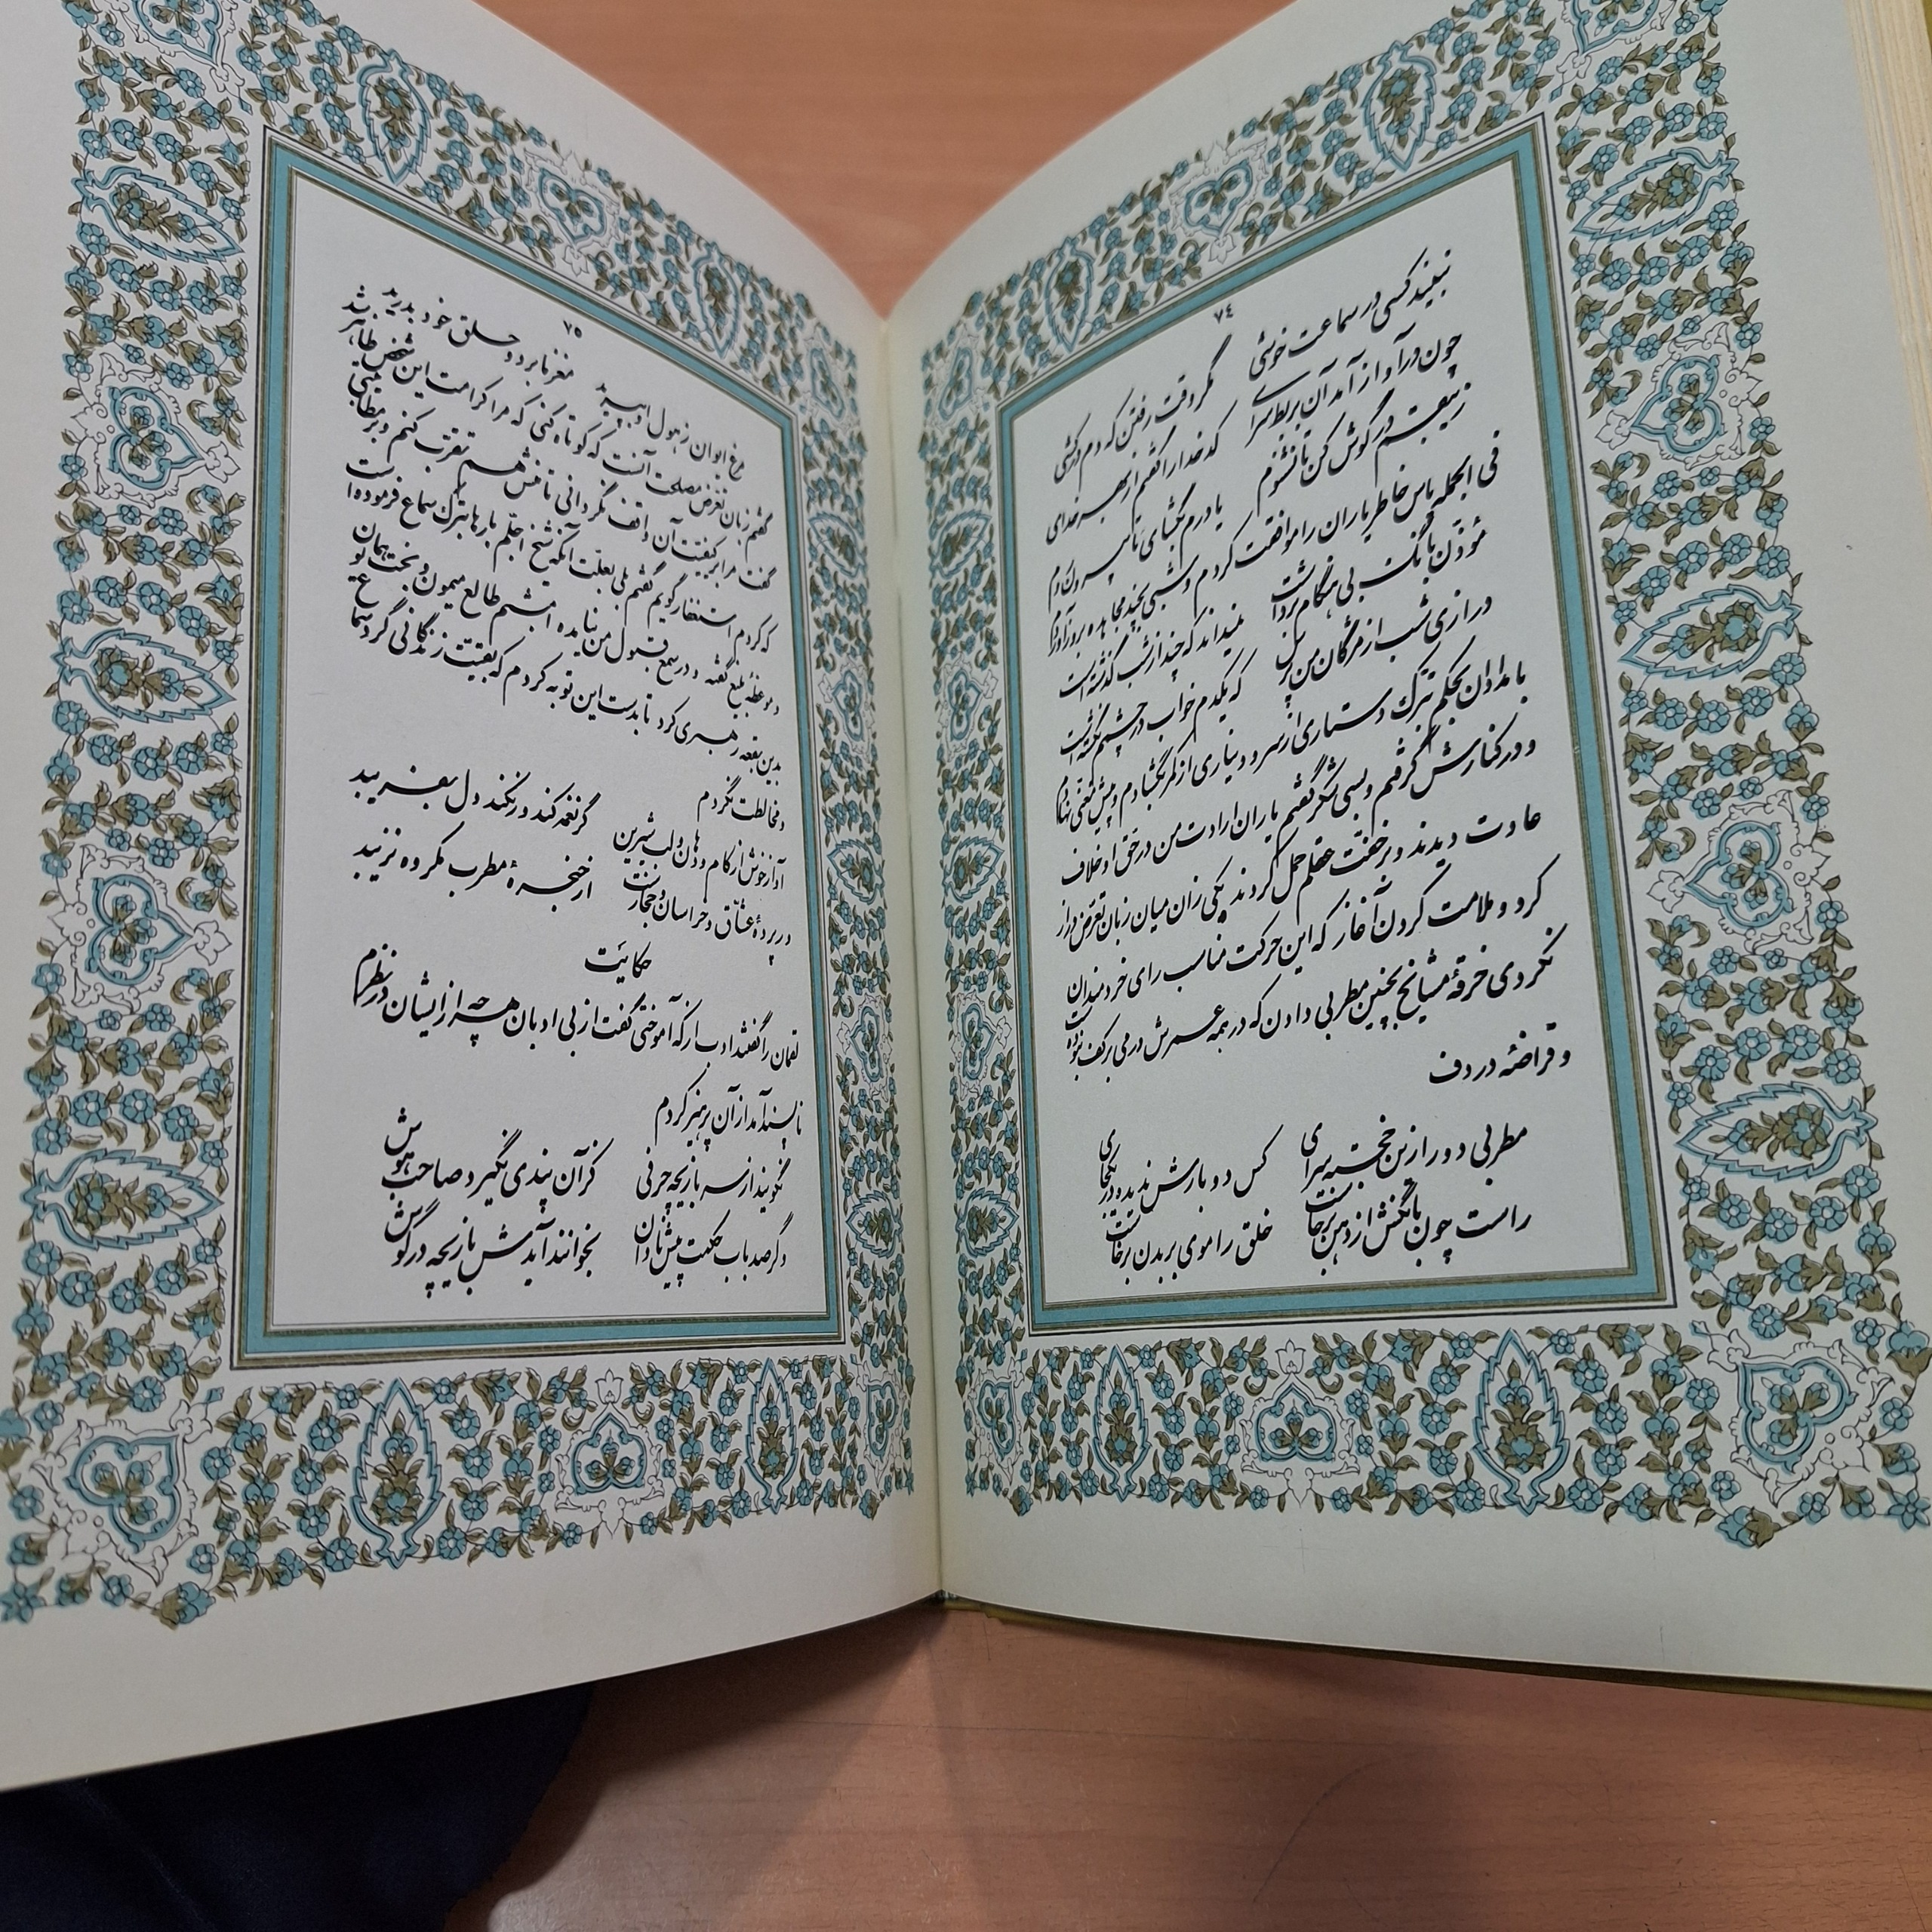 ۷٤
نبیند کسی در سماعت خوشی مگر وقت رفتن که دم درکشی
چون در آواز آمد آن بربط سرای که خدا را گفتم از بهر خدای
زیبقم در گوش کن تا نشنوم یا درم بگشای تا بیرون روم
فی الجمله پاس خاطر یاران را موافقت کردم و شبی بچند مجاهده بروز آوردم
مؤذن بانگ بی هنگام برداشت نمیداند که چند از شب گذشته است
درازی شب از مژگان من پرس که یکدم خواب در چشمم نگشته است
بامدادان بحکم تبرک دستاری از سر و دیناری از کمر بگشادم و پیش مغنی نهادم
و در کنارش گرفتم و بسی شکر گفتم یاران ارادت من در حق او خلاف
عادت دیدند و بر خفت عقلم حمل کردند یکی زان میان زبان تعرض دراز
کرد و ملامت کردن آغاز که این حرکت مناسب رای خردمندان
نکردی خرقهٔ مشایخ بچنین مطربی دادن که در همه عمرش درمی بر کف نبوده است
و قراضهٔ در دف
مطربی دور ازین خجسته سرای کس دو بارش ندیده در یکجای
راست چون بانگش از دهن برخاست خلق را موی بر بدن برخاست
۷۵
مرغ ایوان ز هول او بپرید مغز ما برد و حلق خود بدرید
گفتم زبان تعرض مصلحت آنست که کوتاه کنی که مرا کرامت این شخص ظاهر شد
گفت مرا بر کیفیت آن واقف نگردانی تا منش هم تقرب کنم و بر مطایبتی
که کردم استغفار گویم گفتم بلی بعلت آنکه شیخ اجلم بارها بترک سماع فرموده است
و موعظهٔ بلیغ گفته و در سمع قبول من نیامده امشبم طالع میمون و بخت همایون
بدین بقعه رهبری کرد تا بدست این توبه کردم که بقیت زندگانی گرد سماع
و مخالطت نگردم
آواز خوش از کام و دهان و لب شیرین گر نغمه کند ور نکند دل بفریبد
در پردهٔ عشاق و خراسان و حجازست از حنجرهٔ مطرب مکروه نزیبد
حکایت
لقمان را گفتند ادب از که آموختی گفت از بی ادبان هر چه از ایشان در نظرم
ناپسند آمد از آن پرهیز کردم
نگویند از سر بازیچه حرفی کز آن پندی نگیرد صاحب هوش
وگر صد باب حکمت پیش نادان بخوانند آیدش بازیچه در گوش